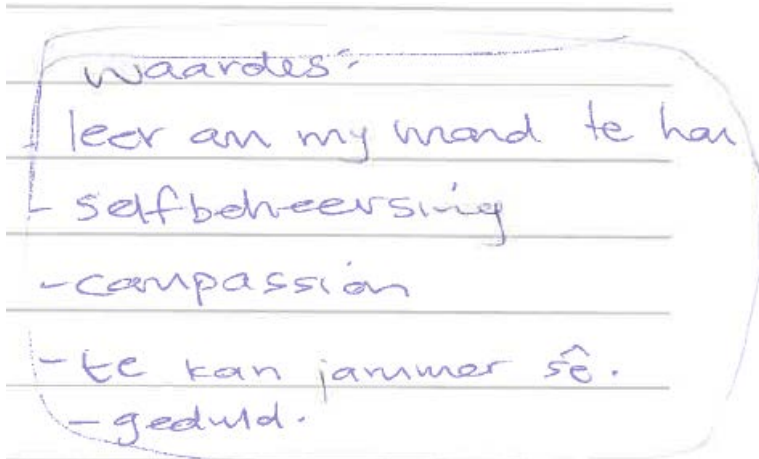 waardes:
- leer om my mond te hou
- selfbeheersing
- compassion
- te kan jammer sê.
- geduld.